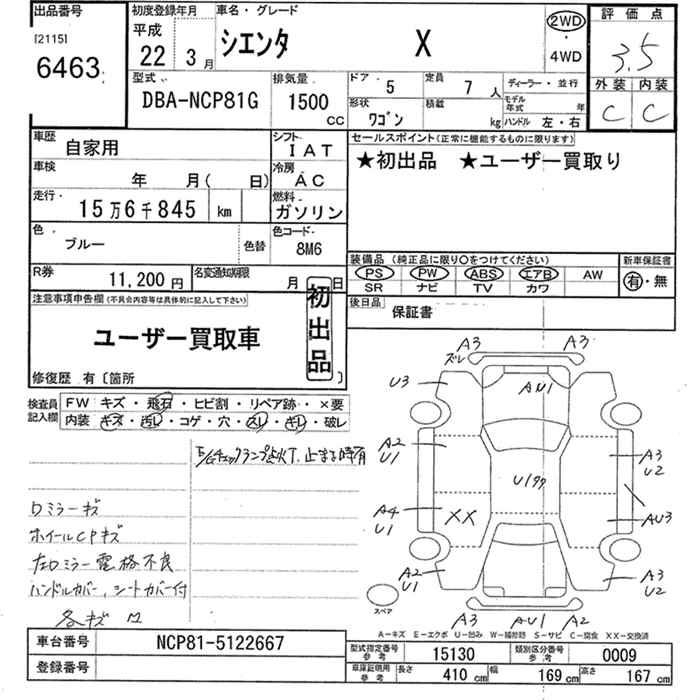 出品番号
[2115]
6463
初度登録年月
平成
22年
3月
車名・グレード
シエンタ X
2WD
・
4WD
評価点
3.5
外装 内装
C C
型式
DBA-NCP81G
排気量
1500
CC
ドア・ 5
定員 7 人
ディーラー・並行
形状 ワゴン
積載 kg
モデル年式 年
ハンドル 左・右
車歴 自家用
シフト IAT
セールスポイント(正常に機能するものに限ります)
★初出品 ★ユーザー買取り
車検 年 月( 日)
冷房 AC
走行・ 15万6千845 km
燃料 ガソリン
色・ ブルー 色替
色コード・ 8M6
装備品(純正品に限り○をつけてください)
新車保証書
PS PW ABS エアB AW
有・無
SR ナビ TV カワ
R券 11,200円
名変通知期限 月 日
後日品 保証書
注意事項申告欄(不具合内容等は具体的に記入して下さい)
初出品
ユーザー買取車
修復歴 有〔箇所 〕
検査員記入欄
FW キズ・飛石・ヒビ割・リペア跡・×要
内装 キズ・汚レ・コゲ・穴・スレ・キレ・破レ
E/Gチェックランプ点火T、止まる時有
ロミラーキズ
ホイールCPキズ
左ロミラー電格不良
ハンドルカバー、シートカバー付
各キズ
A3
ズレ
A3
U3
AU1
A2
U1
U1タタ
A3
U2
A4
U1
XX
AU3
A2
U1
A3
U2
スペア
A3 AU1 A2
A-キズ E-エクボ U-凹み W-補修跡 S-サビ C-腐食 XX-交換済
車台番号 NCP81-5122667
登録番号
型式指定番号
参考
15130
類別区分番号
参考
0009
車庫証明用
参考
長さ 410 cm
幅 169 cm
高さ 167 cm